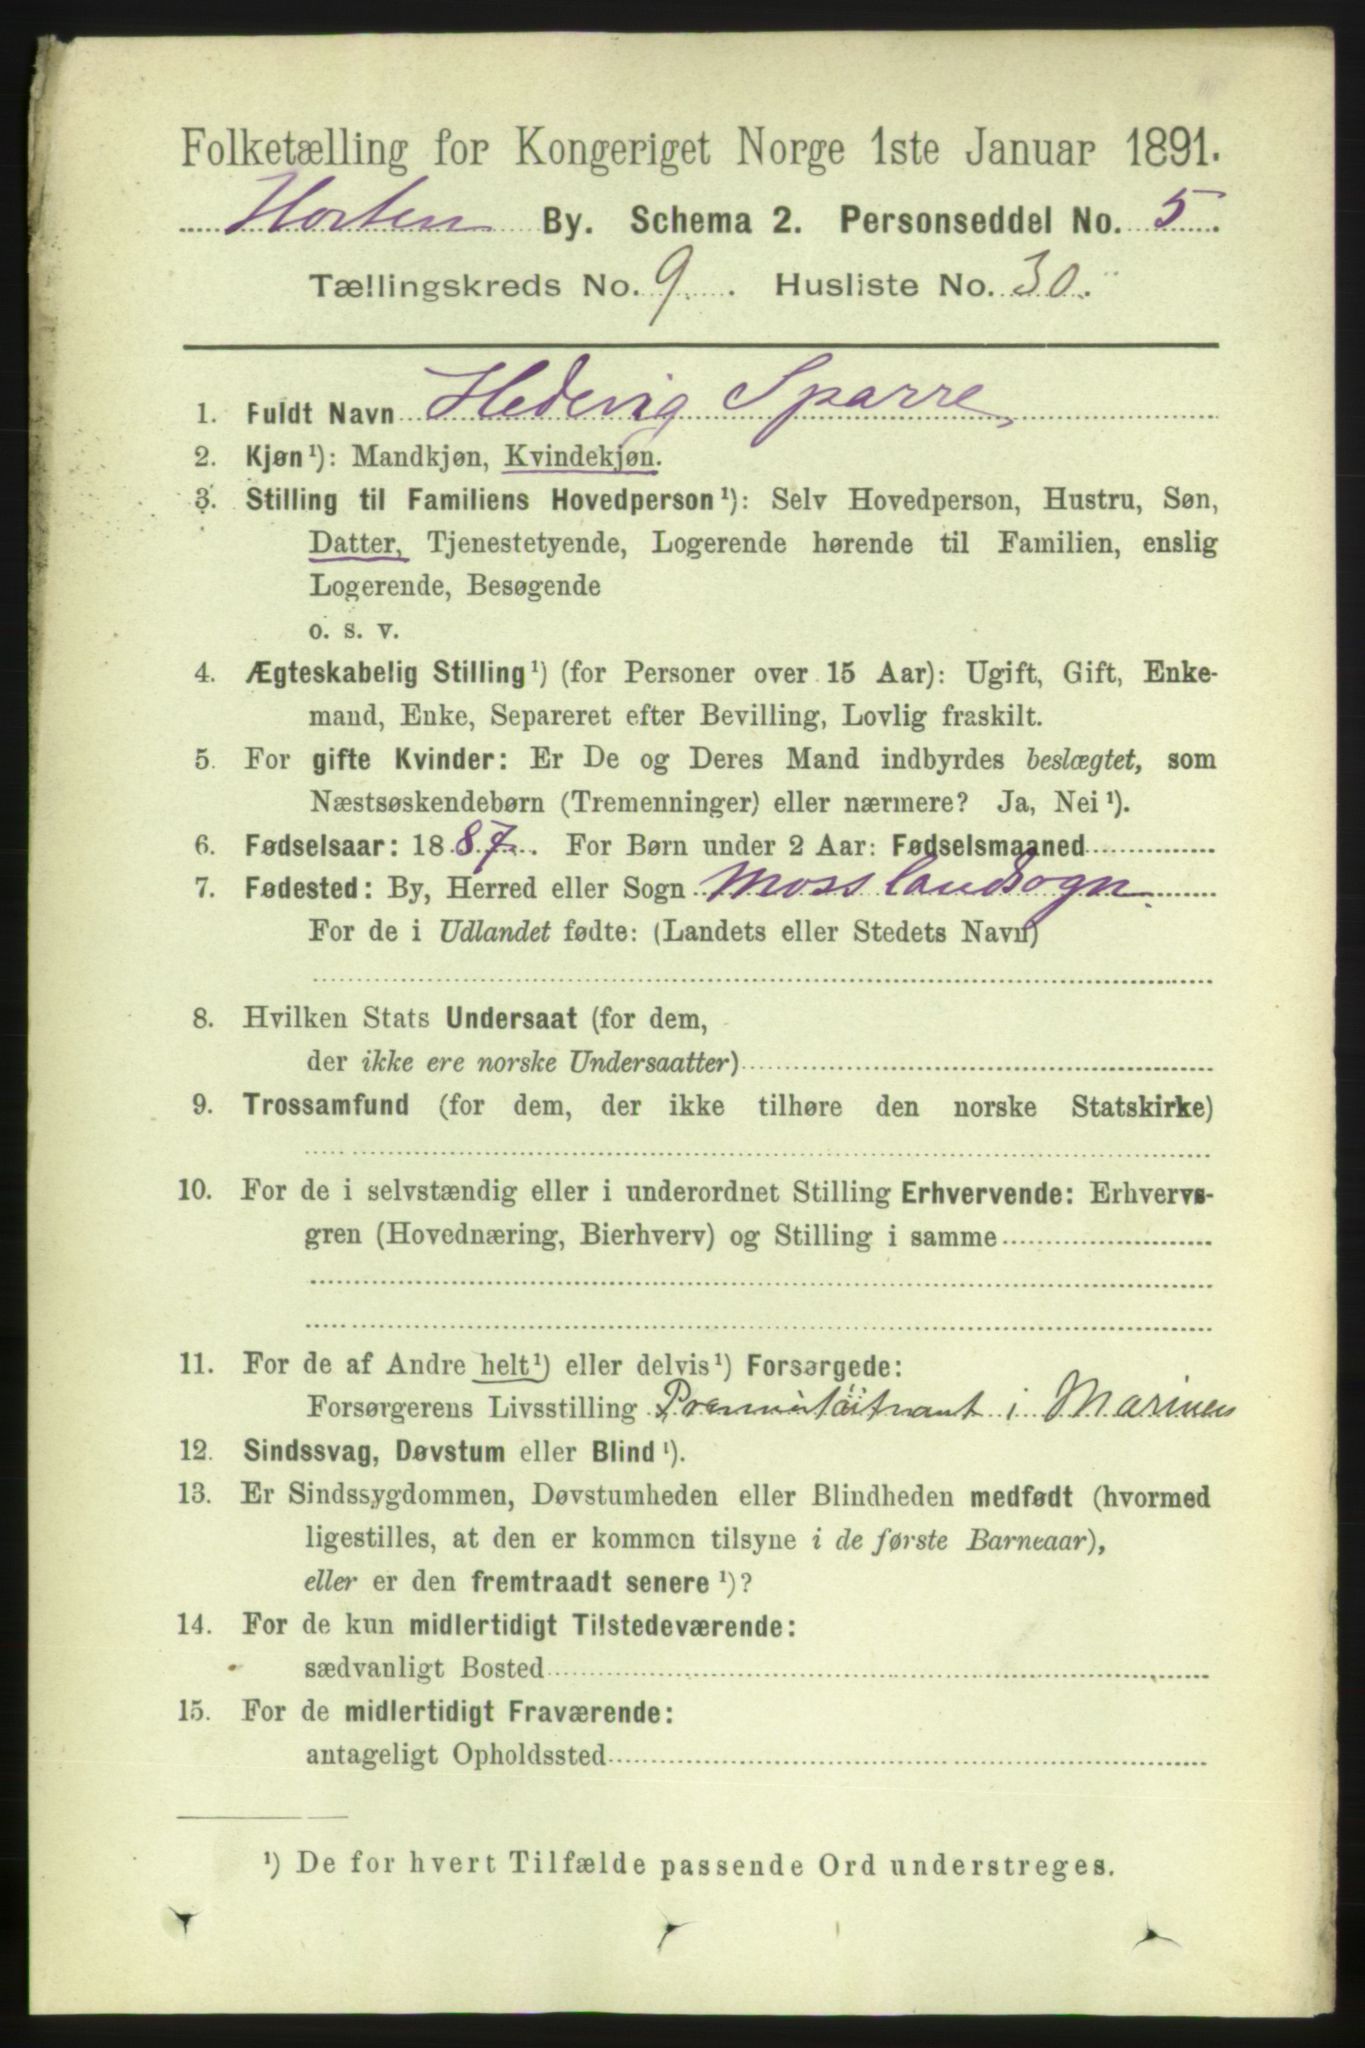 Folketælling for Kongeriget Norge 1ste Januar 1891.
Horten By. Schema 2. Personseddel No. 5.
Tællingskreds No. 9. Husliste No. 30.
1. Fuldt Navn Hedevig Sparre
2. Kjøn¹): Mandkjøn, Kvindekjøn.
3. Stilling til Familiens Hovedperson¹): Selv Hovedperson, Hustru, Søn,
Datter, Tjenestetyende, Logerende hørende til Familien, enslig
Logerende, Besøgende
o. s. v.
4. Ægteskabelig Stilling¹) (for Personer over 15 Aar): Ugift, Gift, Enke-
mand, Enke, Separeret efter Bevilling, Lovlig fraskilt.
5. For gifte Kvinder: Er De og Deres Mand indbyrdes beslægtet, som
Næstsøskendebørn (Tremenninger) eller nærmere? Ja, Nei¹).
6. Fødselsaar: 1887. For Børn under 2 Aar: Fødselsmaaned
7. Fødested: By, Herred eller Sogn Moss landsogn
For de i Udlandet fødte: (Landets eller Stedets Navn)
8. Hvilken Stats Undersaat (for dem,
der ikke ere norske Undersaatter)
9. Trossamfund (for dem, der ikke tilhøre den norske Statskirke)
10. For de i selvstændig eller i underordnet Stilling Erhvervende: Erhvervs-
gren (Hovednæring, Bierhverv) og Stilling i samme
11. For de af Andre helt¹) eller delvis¹) Forsørgede:
Forsørgerens Livsstilling i Marinen
12. Sindssvag, Døvstum eller Blind¹).
13. Er Sindssygdommen, Døvstumheden eller Blindheden medfødt (hvormed
ligestilles, at den er kommen tilsyne i de første Barneaar),
eller er den fremtraadt senere¹)?
14. For de kun midlertidigt Tilstedeværende:
sædvanligt Bosted
15. For de midlertidigt Fraværende:
antageligt Opholdssted
¹) De for hvert Tilfælde passende Ord understreges.